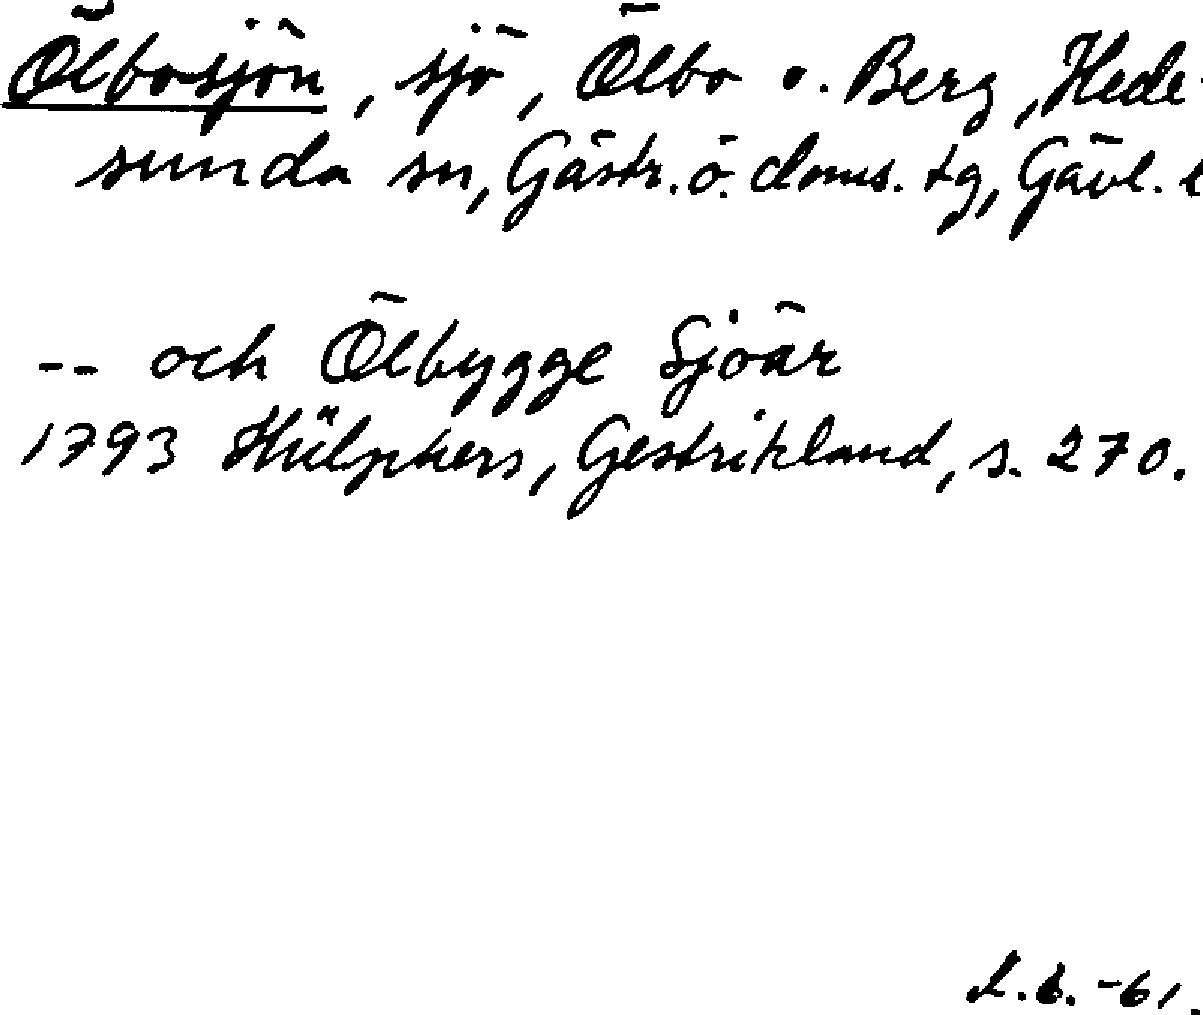 Ölbosjön, sjö, Ölbo o. Berg, Hede-
sunda sn, Gästr. ö. doms. tg, Gävl. l
-- och Ölbygge Sjöar
1793 Hülphers, Gestrikland, s. 270.
-61.